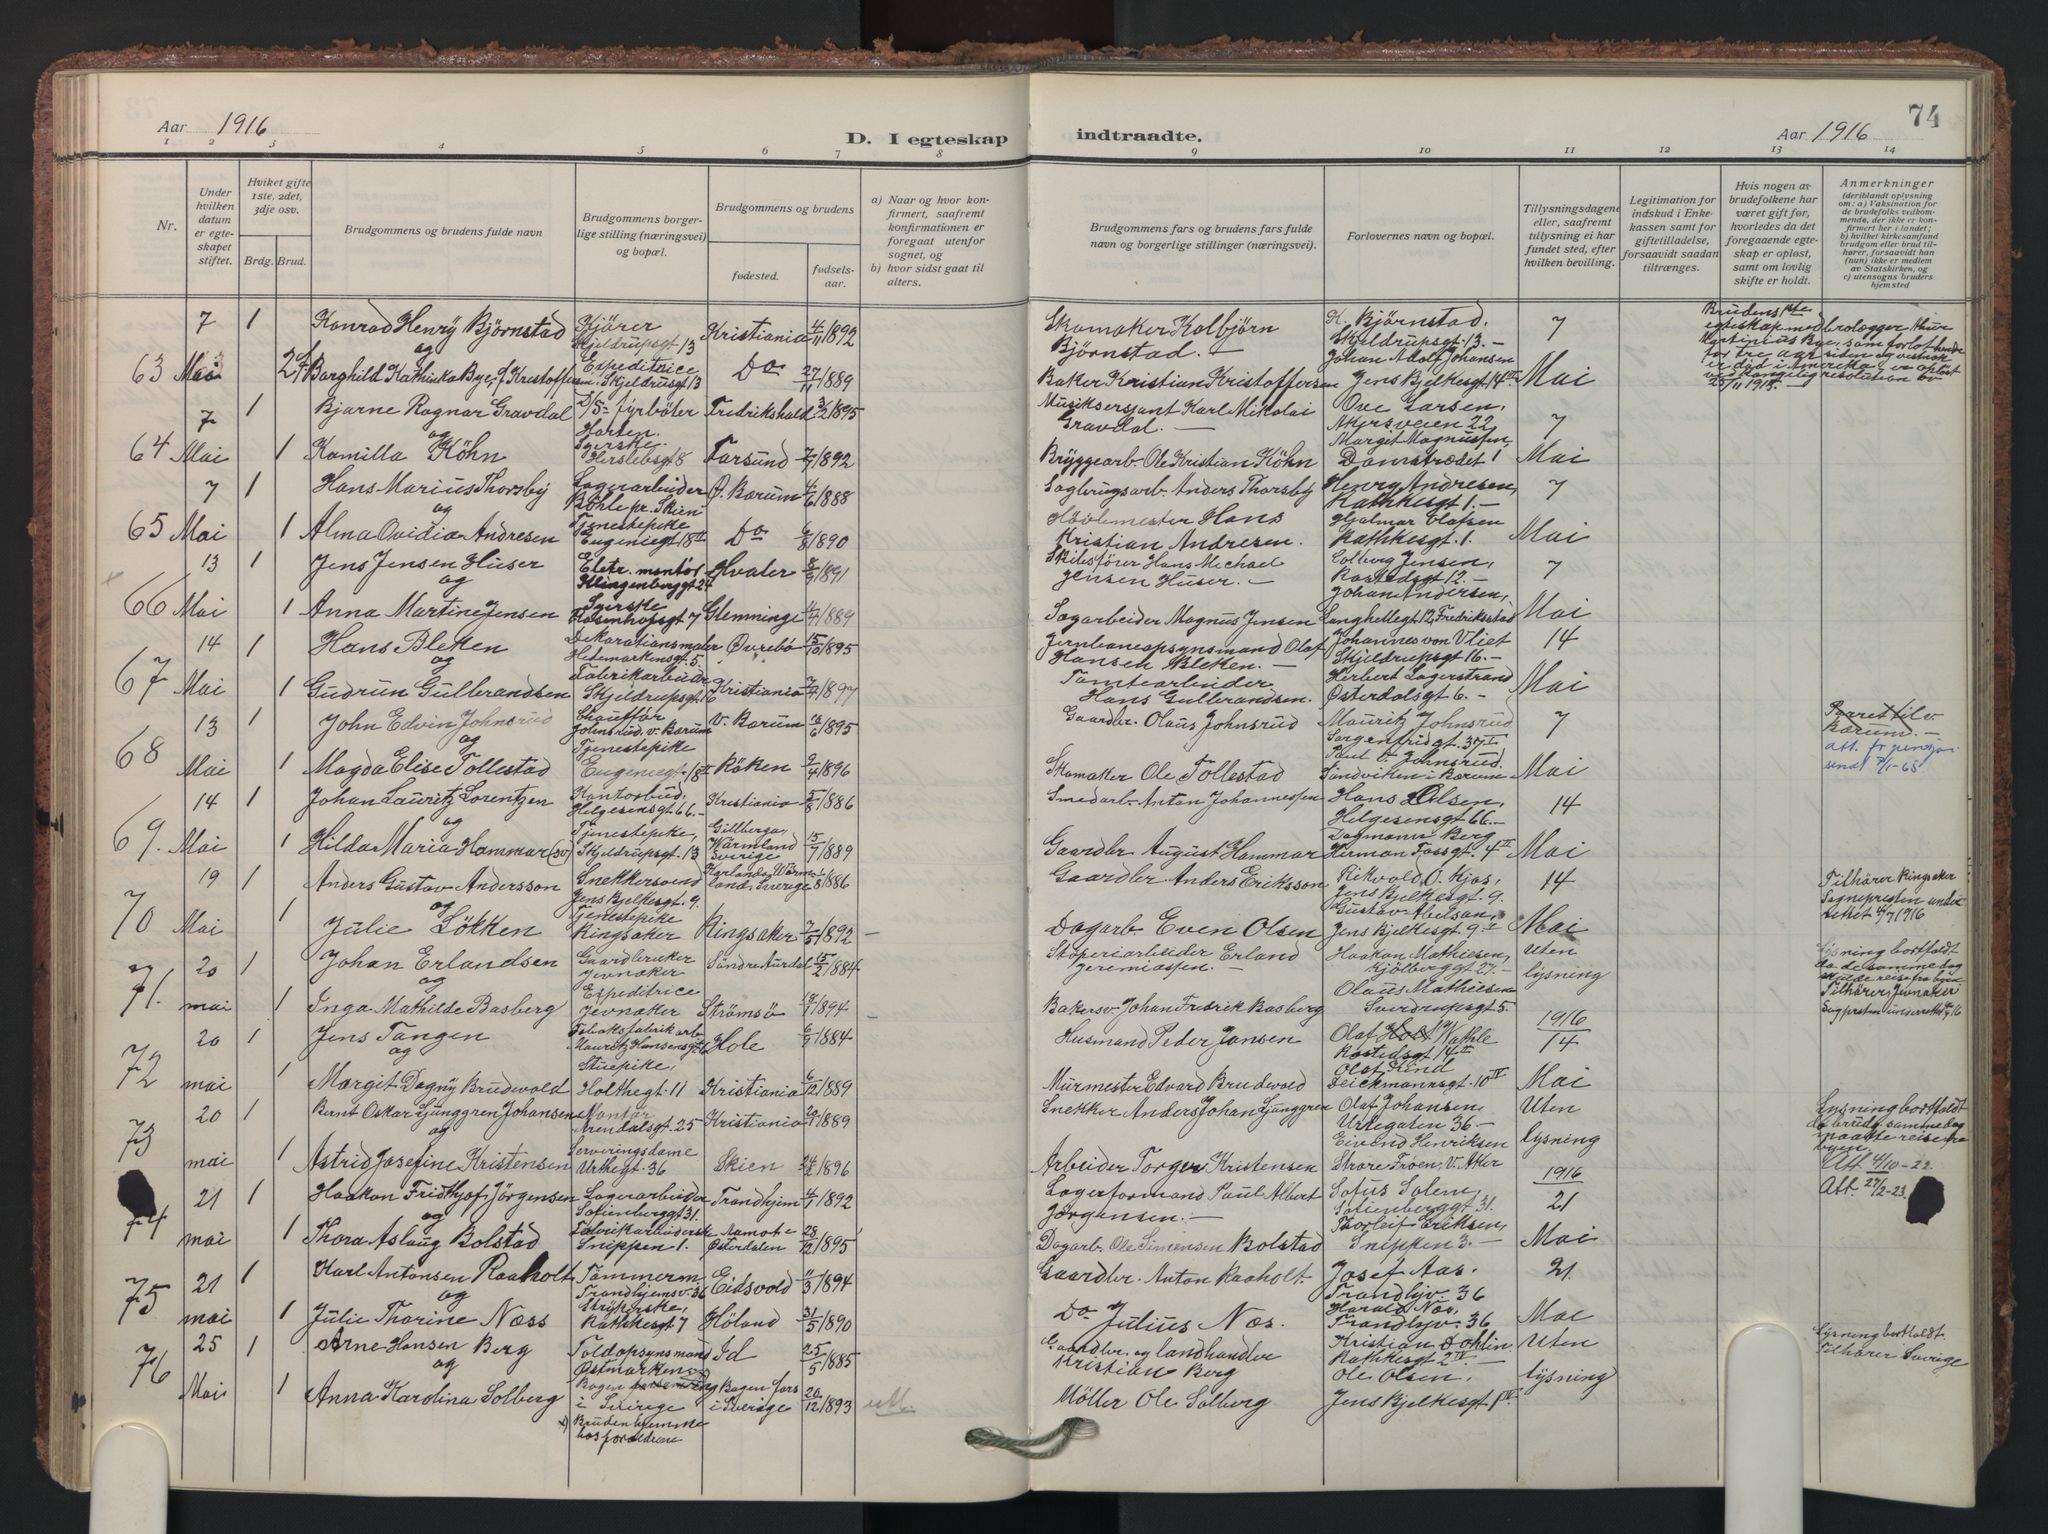 74
Aar 1916
D. I egteskap
indtraadte.
Aar 1916
1 2 3 4 5 6 7 8 9 10 11 12 13 14
Nr.
Under hvilken datum er egteskapet stiftet.
Hviket gifte 1ste, 2det, 3dje osv.
Brdg. Brud.
Brudgommens og brudens fulde navn
Brudgommens borgerlige stilling (næringsvei) og bopæl.
Brudgommens og brudens
fødested.
fødselsaar.
a) Naar og hvor konfirmert, saafremt konfirmationen er foregaat utenfor sognet, og
b) hvor sidst gaat til alters.
Brudgommens fars og brudens fars fulde navn og borgerlige stillinger (næringsvei).
Forlovernes navn og bopæl.
Tillysningsdagene eller, saafremt tillysning ei har fundet sted, efter hvilken bevilling.
Legitimation for indskud i Enkekassen samt for giftetilladelse, forsaavidt saadan tiltrænges.
Hvis nogen av brudefolkene har været gift før, hvorledes da det foregaaende egteskap er opløst, samt om lovlig skifte er holdt.
Anmerkninger
(deriblandt oplysning om: a) Vaksination for de brudefolks vedkommende, der ikke er konfirmert her i landet; b) hvilket kirkesamfund brudgom eller brud tilhører, forsaavidt han (hun) ikke er medlem av Statskirken, og c) utensogns bruders hjemsted
63 7 Mai 1 Konrad Henry Bjørnstad Kjører Skjeldrupsgt 13 Kristiania 4/11 1892 Skomaker Kolbjørn Bjørnstad. K. Bjørnstad. Skjeldrupsgt. 13. 7 Mai
og
Borghild Kathinka Bye, f. Kristoffersen Expeditrice Skjeldrupsgt 13 Do 27/11 1889 Baker Kristian Kristoffersen Johan Adolf Johansen Jens Bjelkesgt 14 III
64 7 Mai 1 Bjarne Ragnar Gravdal fyrbøter Horten. Fredrikshald 3/2 1895 Musiksersjant Karl Mikolai Gravdal. Ove Larsen, Akersveien 22 7 Mai
og
1 Kamilla Köhn Syerske Herslebsgt 8 Farsund 7/9 1892 Bryggearb. Ole Kristian Köhn Margit Magnussen, Damstrædet 1
65 7 Mai 1 Hans Marius Thorsby Lagerarbeider Bøhle pr. Skien Ø. Bærum 4/6 1888 Sagbrugsarb. Anders Thorsby Henry Andresen, Rathkesgt 1. 7 Mai
og
1 Alma Ovidia Andresen Tjenestepike Eugeniegt 18 II Do 6/8 1890 Høvlemester Hans Kristian Andresen. Hjalmar Olafsen Rathkesgt. 1.
66 13 Mai 1 Jens Jensen Huser Elektr. montør Klingenberggt 2 Hvaler 1891 Skibsfører Hans Michael Jensen Huser. Solberg Jensen, Rostedsgt 12. 7 Mai
og
1 Anna Martine Jensen Syerske Rosenhofsgt 7 Glemminge 4/4 1889 Sagarbeider Magnus Jensen Johan Andersen, Langhellegt 12, Fredrikstad
67 14 Mai 1 Hans Bleken Dekorationsmaler Hedemarkensgt. 5. Øvrebø 15/10 1895 Jernbaneopsynsmand Olaf Hansen Bleken. Johannes von Vliet Skjeldrupsgt 16. 14 Mai
og
1 Gudrun Gulbrandsen Fabrikarbeider Skjeldrupsgt 16 Kristiania 7/7 1897 Tomtearbeider Hans Gulbrandsen. Herbert Lagerstrand Østerdalsgt 6.
68 13 Mai 1 John Edvin Johnsrud Chauffør Johnsrud, v. Bærum V. Bærum 10/6 1895 Gaardbr. Olaus Johnsrud Mauritz Johnsrud Sorgenfridgt. 37 I 7 Mai
og
1 Magda Elise Tollestad Tjenestepike Eugeniegt 18 II Røken 9/4 1896 Skomaker Ole Tollestad Paul O. Johnsrud. Sandviken i Bærum
Bærum.
att. fr pensjon
69. 14 Mai 1 Johan Lauritz Lorentzen Kontorbud, Helgesensgt. 66. Kristiania 5/8 1886 Smedarb. Anton Johannessen Hans Olsen, Helgesensgt 66. 14 Mai
og
1 Hilda Maria Hammar Tjenestepike, Skjeldrupsgt. 13 Gillberga, Wärmland Sverige 15/7 1889 Gaardbr. August Hammar Dagmann Berg Herman Fossgt. 4 II
70 19 Mai 1 Anders Gustav Andersson Snekkersvend Jens Bjelkesgt. 9. Karlanda, Wärmland, Sverige 1/8 1886 Gaardbr. Anders Eriksson Rikvold O. Kjos, Jens Bjelkesgt. 9. 14 Mai
og
1 Julie Løkken Tjenestepike Ringsaker Ringsaker 7/5 1892 Dagarb. Even Olsen Gustav Abelson, Jens Bjelkesgt 9 II
Tilhører Ringsaker Sognepresten underrettet 4/7 1916
71. 20 mai 1 Johan Erlandsen Gaardbruker Jevnaker Søndre Aurdal 15/2 1884 Støperiarbeider Erland Jeremiassen. Haakon Mathiesen, Kjølberggt 27. Uten lysning
og
1 Inga Mathilde Basberg Expeditrice Jevnaker Strømsø 1894 Bakersv. Johan Fredrik Basberg Olaus Mathiesen Sverdrupsgt 5.
Lysning bortfaldt da de samme dag skulde reise fra byen Tilhører Jevnaker
72 20 mai 1 Jens Tangen Tobaksfabrikarb. Mauritz Hansensgt 6 Hole 6/9 1884 Husmand Peder Jansen Olaf Vathle Rostedsgt 14 II 1916 14 Mai
og
1 Margit Dagny Brudevold Stuepike, Holthegt. 11 Kristiania 6/12 1889 Murmester Edvard Brudevold Olaf Lind Deichmannsgt. 10 IV
73 20 mai 1 Bernt Oskar Ljunggren Johansen Kontor Arendalsgt. 25 Kristiania 1889 Snekker Anders Johan Ljunggren Olaf Johansen, Urtegaten 36 Uten lysning
og
1 Astrid Josefine Kristensen Serveringsdame Urtkegt. 36 Skien 1896 Arbeider Torger Kristensen Eivind Henriksen Store Frøen, V. Aker
Lysning bortfaldt da brudg. samme dag maatte reise fra byen.
Att. 4/10-22.
Att. 27/2-23.
74 21 mai 1 Haakon Fridthjof Jørgensen Lagerarbeider Sofienberggt 31. Trondhjem 4/7 1892 Lagerformand Paul Albert Jørgensen. Sofus Solem, Sofienberggt 31. 1916 21 Mai
og
1 Thora Aslaug Bolstad Fabrikarbeiderske Snippen 1. Aamot i Østerdalen 28/12 1895 Dagarb. Ole Simensen Bolstad Thorleif Eriksen, Snippen 3.
75 21 mai 1 Karl Antonsen Raaholt Tømmerm. Trondhjemsv. 36 Eidsvold 11/3 1894 Gaardbr. Anton Raaholt. Josef Aas. Trondhjv. 36 21. Mai
og
1 Julie Thorine Næss Strykerske, Rathkesgt 7 Høland 31/5 1890 Do Julius Næs. Harald Næs, Trondhjv. 36
76 25 Mai 1 Arne Hansen Berg Toldopsynsmand Østmarken Id 25/5 1885 Gaardbr. og landhandler Kristian Berg Kristian Dahlin Rathkesgt 2 IV. Uten lysning
og
1 Anna Karolina Solberg Bogen i Sverige Bogen i Sverige 20/12 1893 Møller Ole Solberg Ole Olsen, Jens Bjelkesgt
Bruden hjemme hos forældrene
Lysning bortfaldt.
Tilhører Sverige